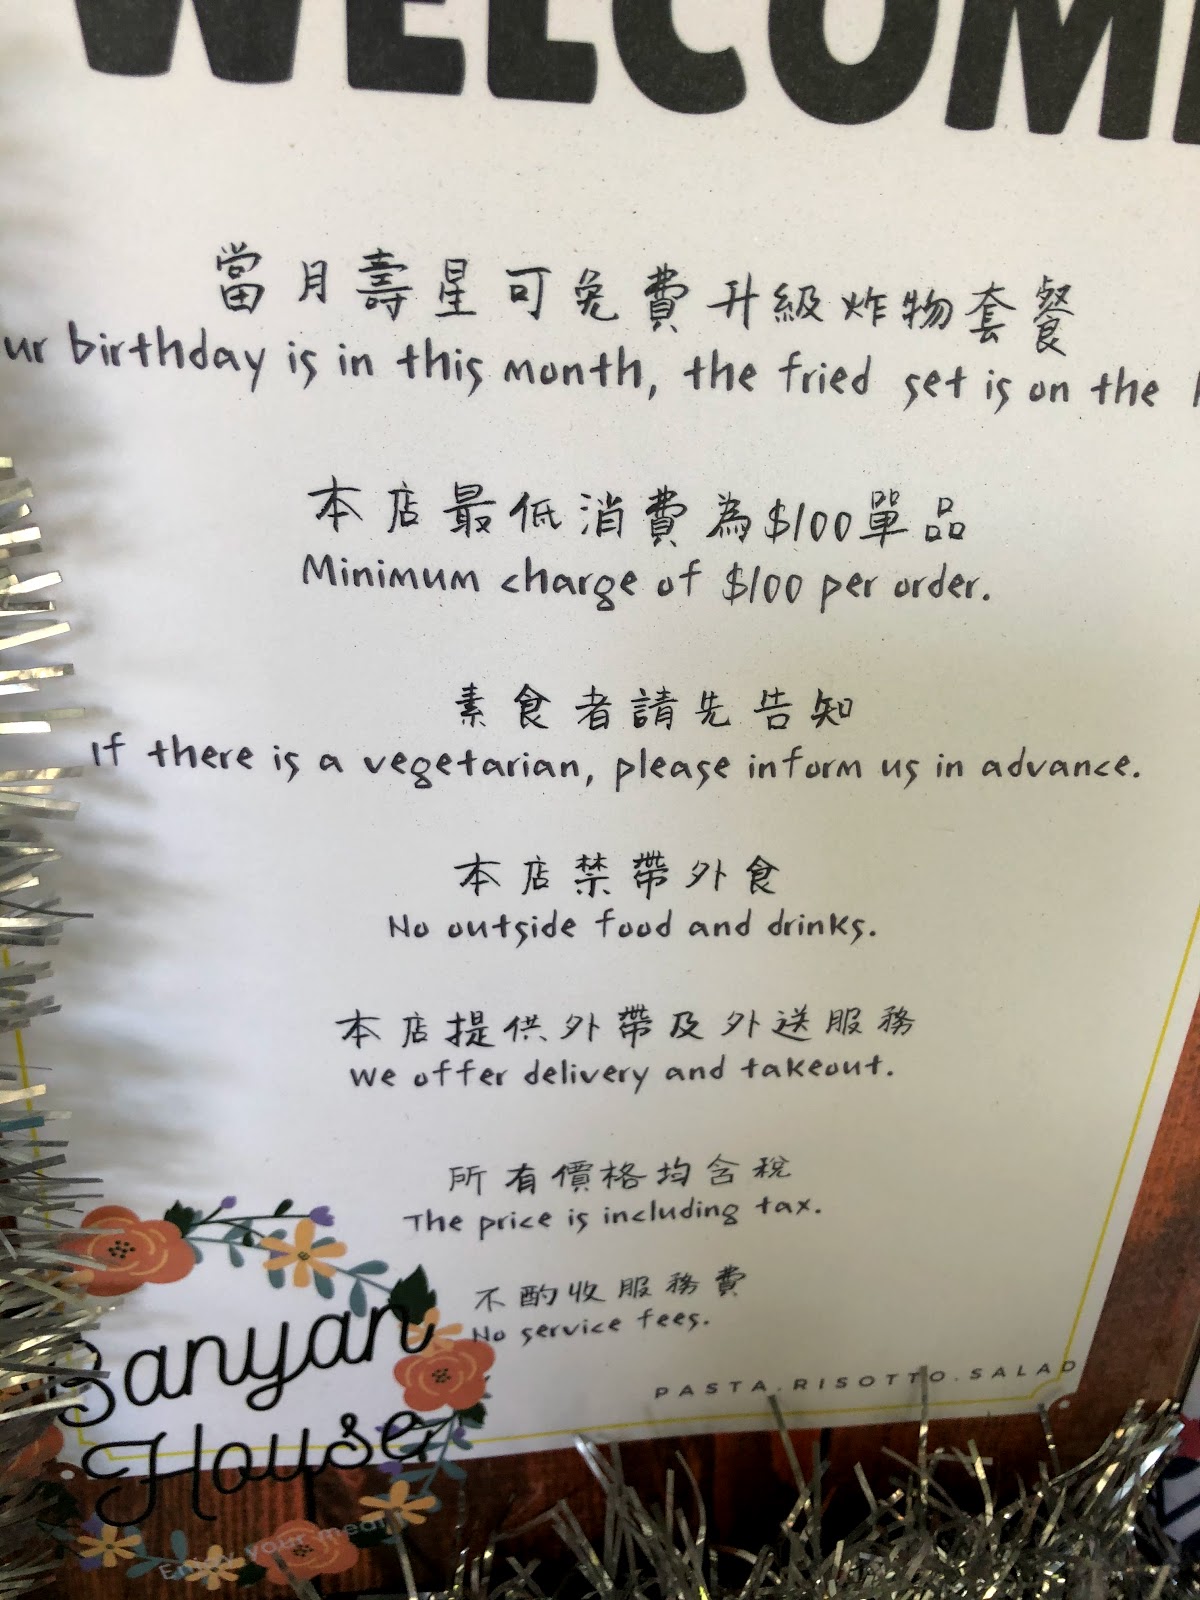 WELCOM
當月壽星可免費升級炸物套餐
ur birthday is in this month, the fried set is on the
本店最低消費為$100單品
Minimum charge of $100 per order.
素食者請先告知
If there is a vegetarian, please inform us in advance.
本店禁帶外食
No outside food and drinks.
本店提供外帶及外送服務
We offer delivery and takeout.
所有價格均含稅
The price is including tax.
不酌收服務費
No service fees.
PASTA.RISOTTO.SALAD
Banyan
House
Enjoy your meal